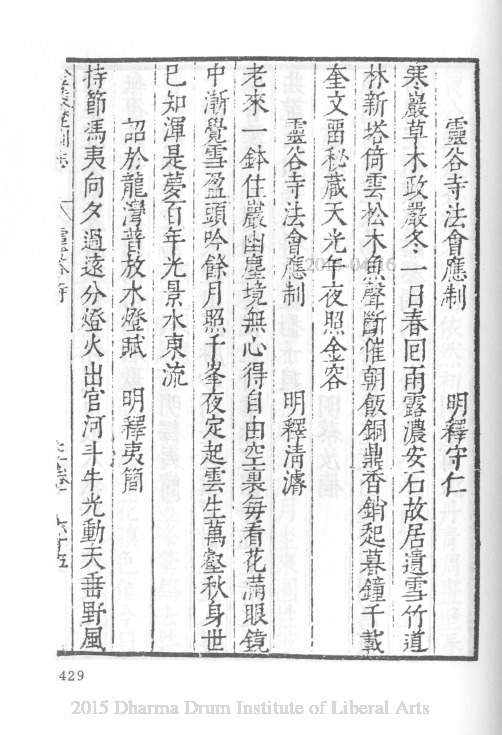 靈谷寺法會應制　明釋守仁
寒巖草木政嚴冬一日春囘雨露濃安石故居遺雪竹道
林新塔倚雲松木魚聲斷催朝飯銅鼎香銷起暮鐘千載
奎文畱秘藏天光午夜照金容
靈谷寺法會應制　明釋清濬
老來一鉢住巖幽塵境無心得自由空裏每看花滿眼鏡
中漸覺雪盈頭吟餘月照千峯夜定起雲生萬壑秋身世
已知渾是夢百年光景水東流
詔於龍灣普放水燈賦　明釋夷簡
持節馮夷向夕過遠分燈火出官河斗牛光動天垂野風
靈谷寺
429
2015 Dharma Drum Institute of Liberal Arts